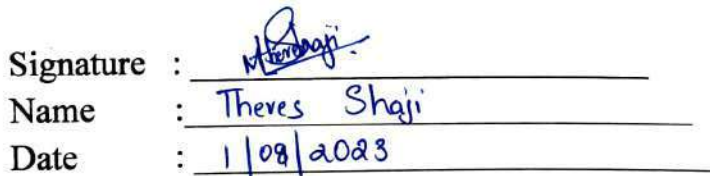 Signature :
Name : Theres Shaji
Date : 1/08/2023